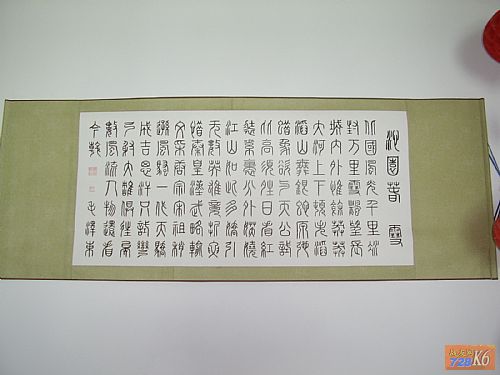 沁園春 雪
北國風光千里冰
封万里雪飄望長
城內外惟餘莽莽
大河上下頓失滔
滔山舞銀蛇原馳
蠟象欲与天公試
比高須晴日看紅
裝素裹分外妖嬈
江山如此多嬌引
无數英雄競折腰
惜秦皇漢武略輸
文采唐宗宋祖稍
遜風騷一代天驕
成吉思汗只識彎
弓射大雕俱往矣
數風流人物還看
今朝
毛澤東
728 K6